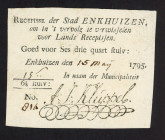 Recepisse der Stad ENKHUIZEN,
om in 't vervolg te verwisselen
voor Lands Recepissen.
Goed voor Ses drie quart stuiv:
Enkhuizen den 15 May 1795.
In naam der Municipaliteit
6¾ stuiv:
No.